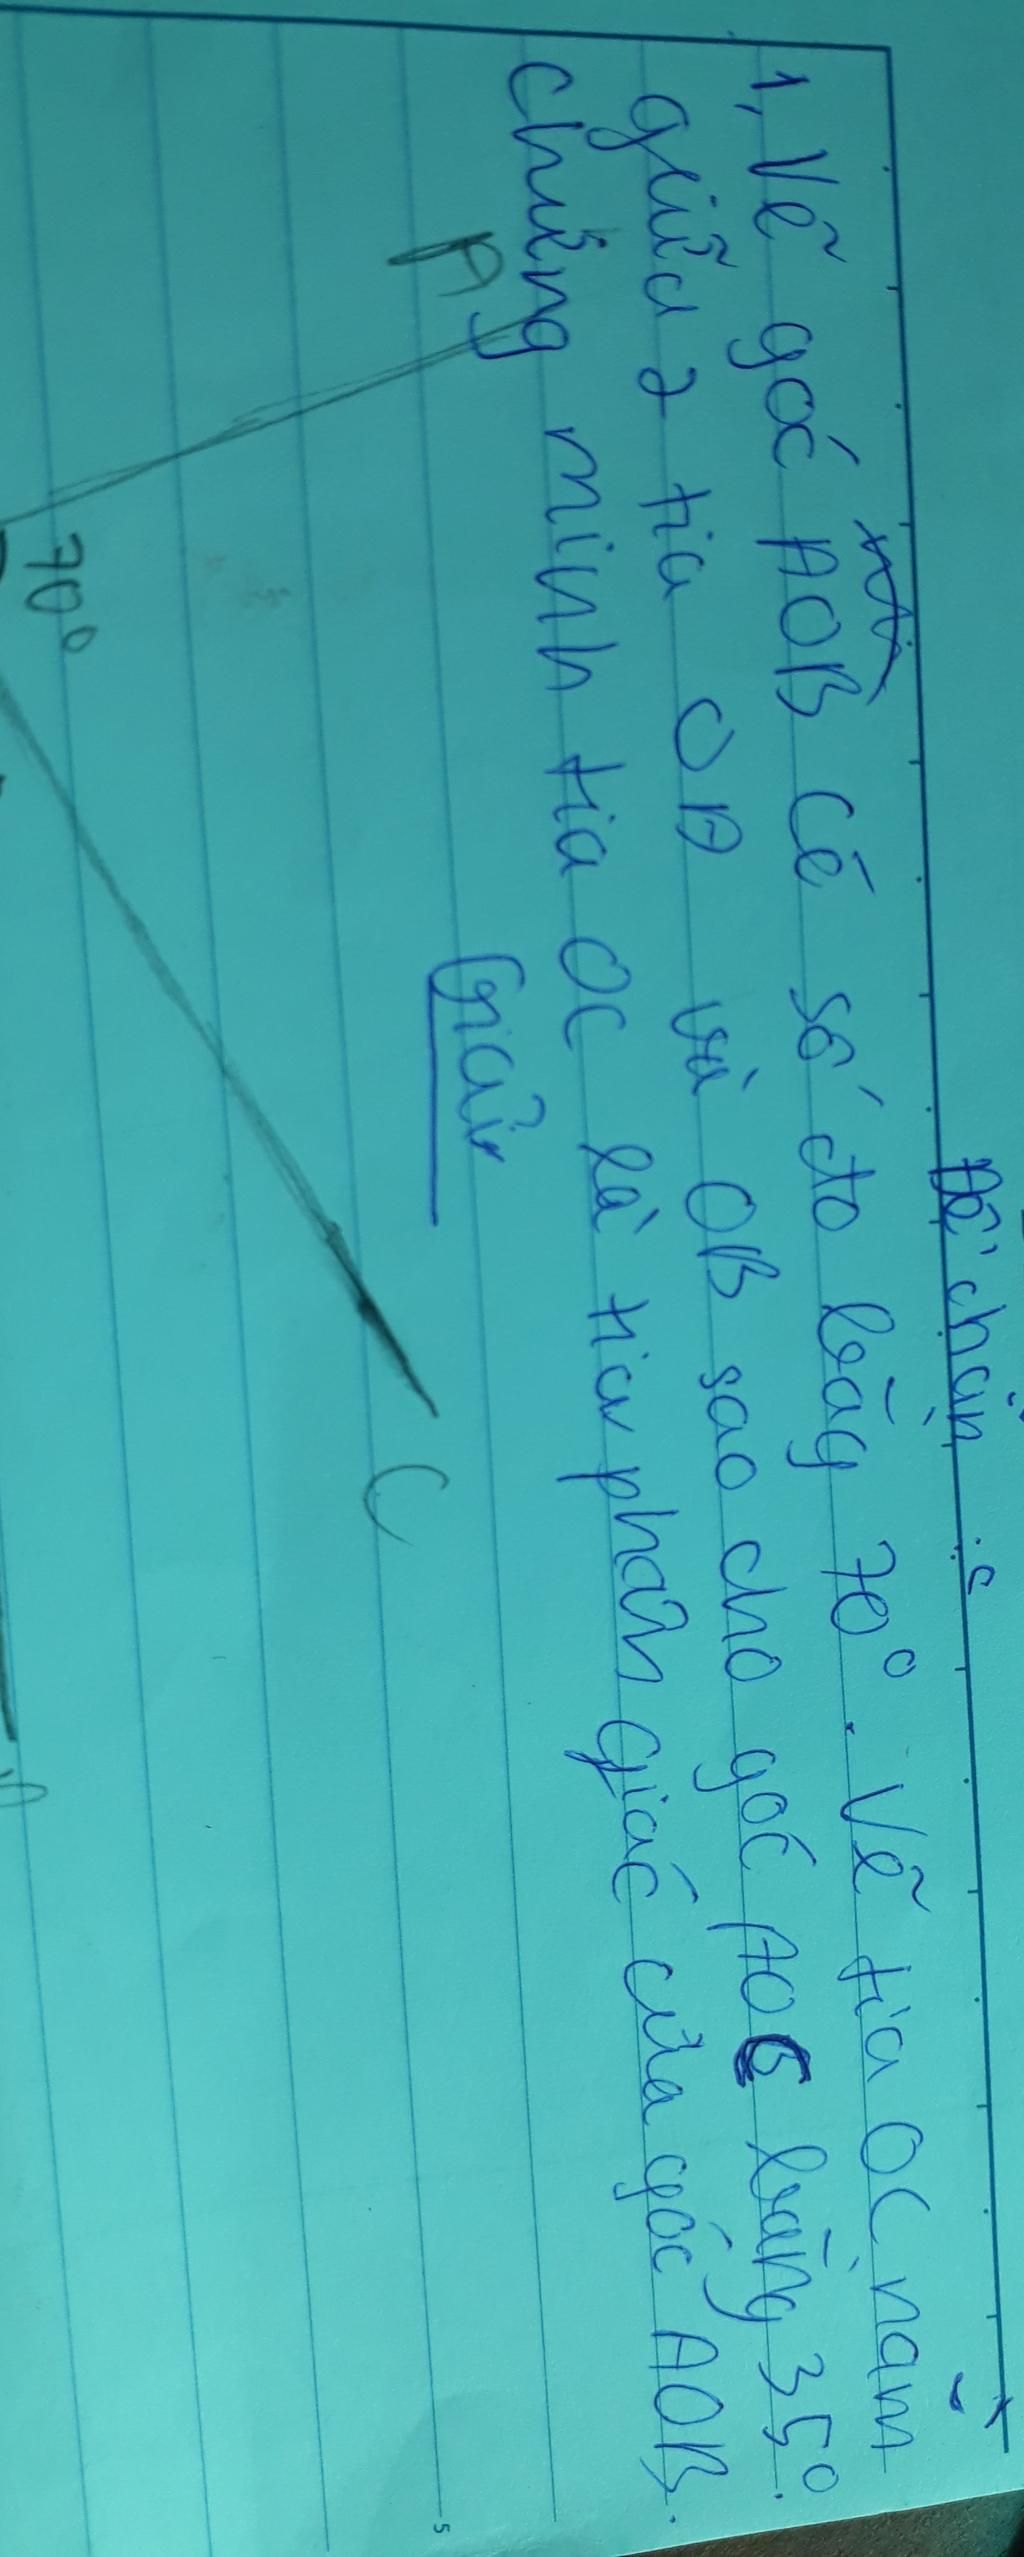 Đề chẵn :
1, Vẽ góc AOB có số đo bằg 70°. Vẽ tia OC nằm
giữa 2 tia OA và OB sao cho góc AOC bằng 35°.
Chứng minh tia OC là tia phân giác của góc AOB.
Giải
A
C
70°